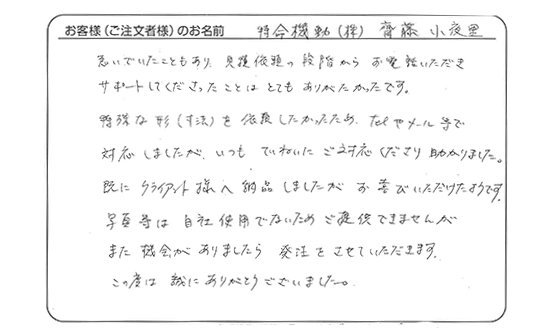 お客様（ご注文者様）のお名前 特合機動（株） 齋藤 小夜里
急いでいたこともあり、見積依頼の段階から お電話いただき
サポートしてくださったことは とても ありがたかったです。
特殊な 形（寸法）を 依頼したかったため、telやメール等で
対応しましたが、いつも ていねいに ご対応くださり 助かりました。
既に クライアント様へ 納品しましたが お喜びいただけたようです。
写真等は 自社使用でないため ご提供できませんが
また 機会がありましたら 発注をさせていただきます。
この度は 誠にありがとうございました。